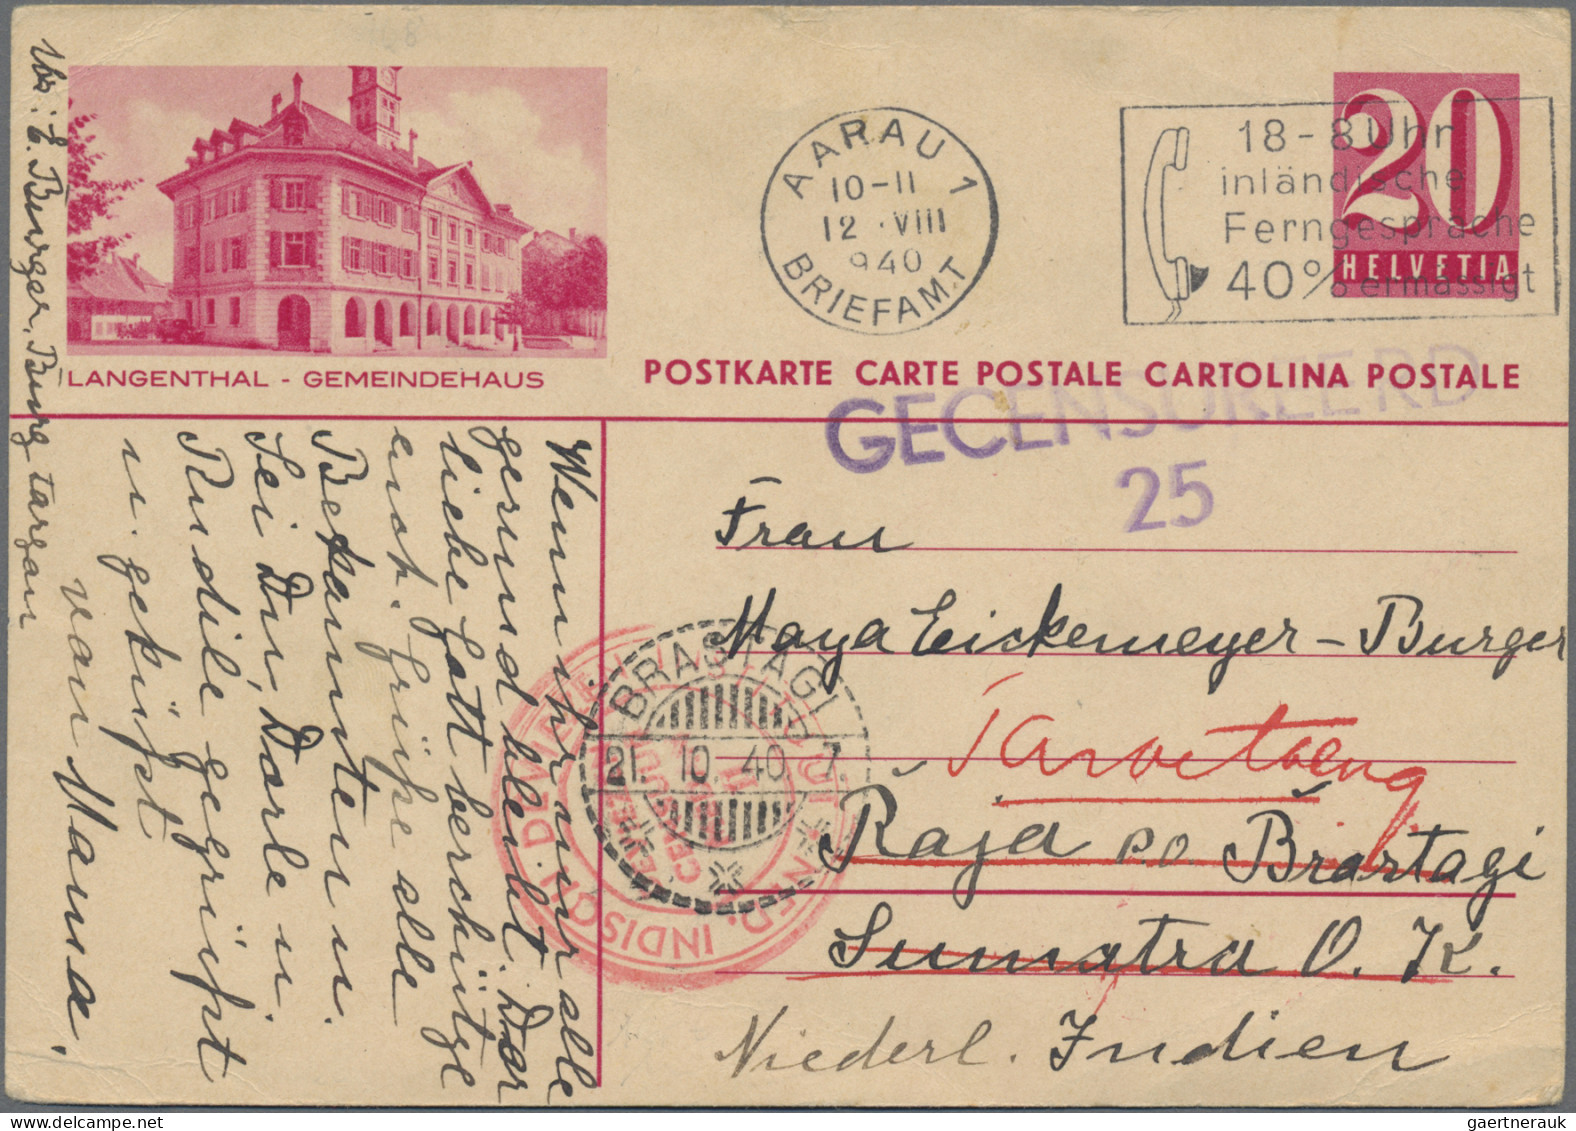 LANGENTHAL - GEMEINDEHAUS
AARAU 1
10-11
12.VIII
940
BRIEFAMT
18-8 Uhr
inländische
Ferngespräche
40% ermässigt
20
HELVETIA
POSTKARTE CARTE POSTALE CARTOLINA POSTALE
GECENSUREERD
25
Frau
Maya Eickemeyer-Burger
Raja p.o. Brastagi
Sumatra O. K.
Niederl. Indien
BRASTAGI
21. 10. 40 7.
NED. INDISCH
E. Burger, Burg
Wenn ihr nur alle
gesund bleibt. Der
liebe Gott beschütze
euch. Grüße alle
Bekannten u.
Sei Du, Dorle u.
Rudile gegrüßt
u. geküßt
von Mama.
gaertnerauk